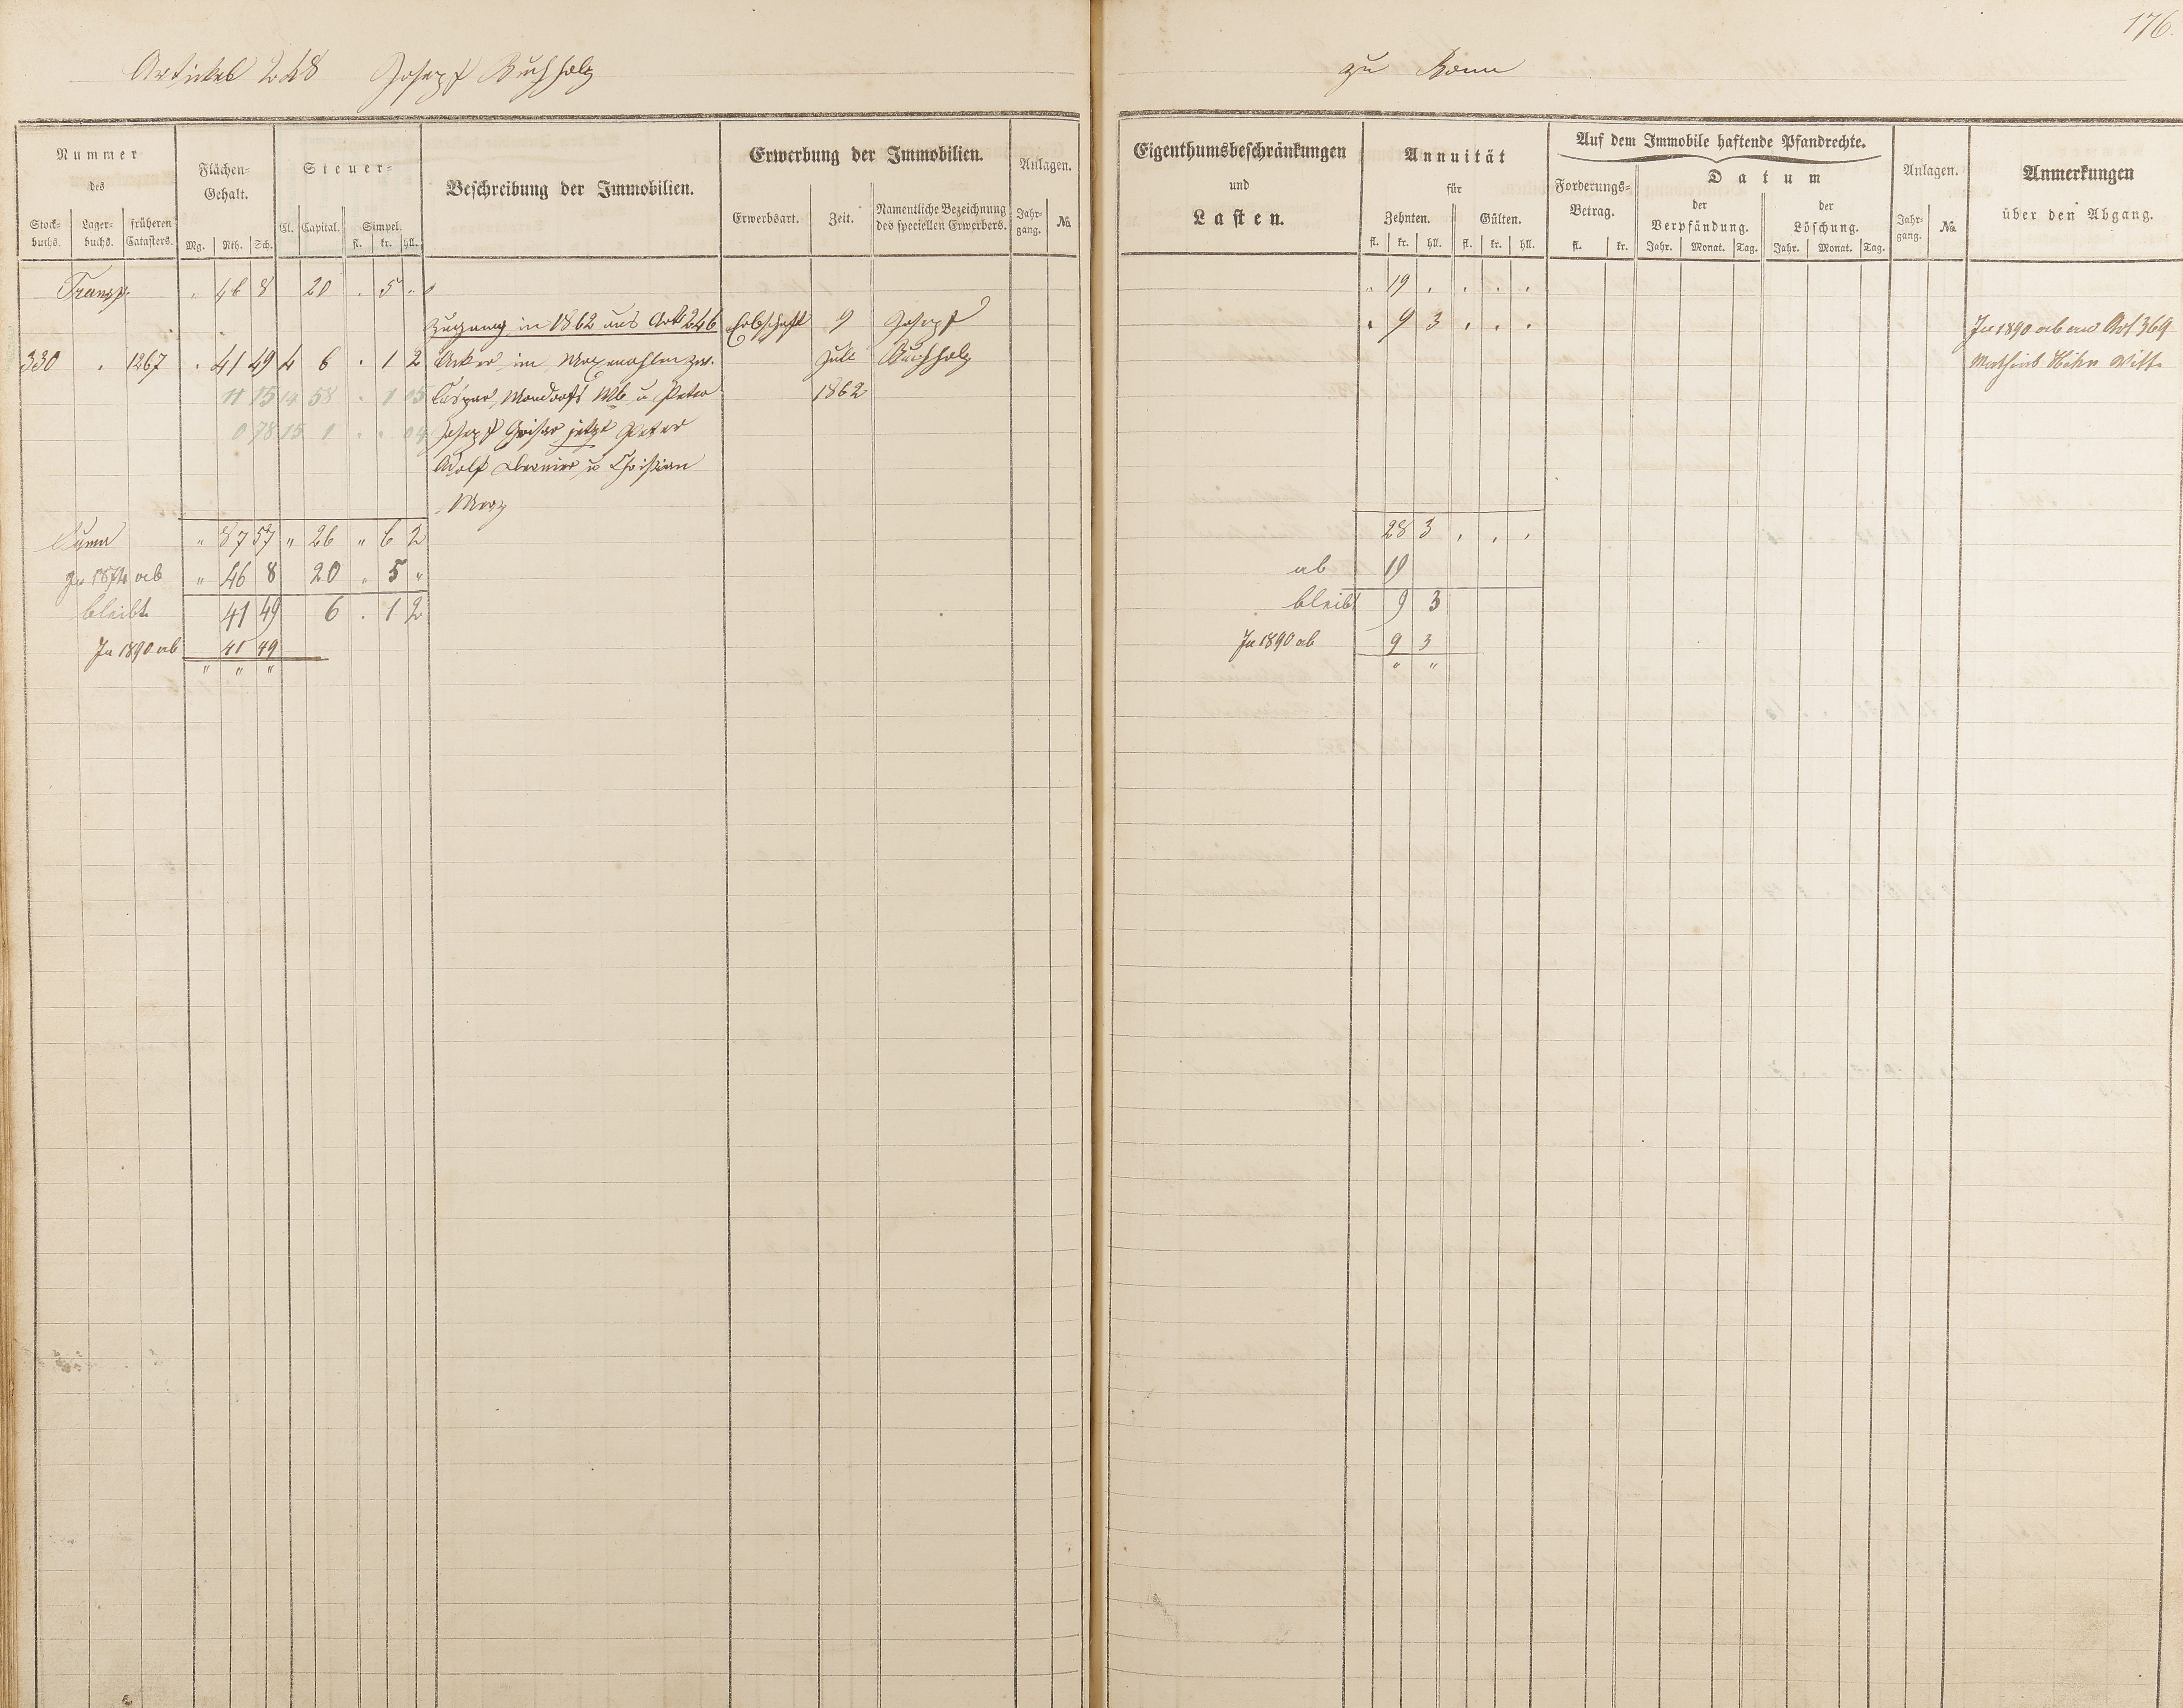 176.
Artikel 248 Joseph Buchholz
zu Bonn
Nummer
des
Stock-
buchs.
Lager-
buchs.
früheren
Catasters.
Flächen-
Gehalt.
Mg. Rth. Sch.
Steuer-
Cl. Capital. Simpel.
fl. kr. hll.
Beschreibung der Immobilien.
Erwerbung der Immobilien.
Erwerbsart. Zeit.
Namentliche Bezeichnung
des speciellen Erwerbers.
Anlagen.
Jahr-
gang.
No.
Transp. " 46 8 20 . 5 "
Zugang in 1862 aus Art 246 Erbschaft 9 Joseph
330 . 1267 . 41 49 4 6 . 1 2 Acker im zw. Juli Buchholz
11 75 14 58 . 1 05 Caspar Mondorfs Wb u Peter 1862
0 78 15 1 . . 04 Joseph Geiser jetzt Peter
Adolf u Christian
Merz
Suma " 87 57 " 26 " 6 2
In 1874 ab " 46 8 20 " 5 "
bleibt 41 49 6 . 1 2
In 1890 ab 41 49
" " "
Eigenthumsbeschränkungen
und
Lasten.
Annuität
für
Zehnten. Gülten.
fl. kr. hll. fl. kr. hll.
Auf dem Immobile haftende Pfandrechte.
Forderungs-
Betrag.
fl. kr.
Datum
der
Verpfändung.
Jahr. Monat. Tag.
der
Löschung.
Jahr. Monat. Tag.
Anlagen.
Jahr-
gang.
No.
Anmerkungen
über den Abgang.
" 19 . . . .
. 9 3 . . . In 1890 ab an Art 369
Mathias Höhn Witt.
28 3 . . .
ab 19
bleibt 9 3
In 1890 ab 9 3
" "